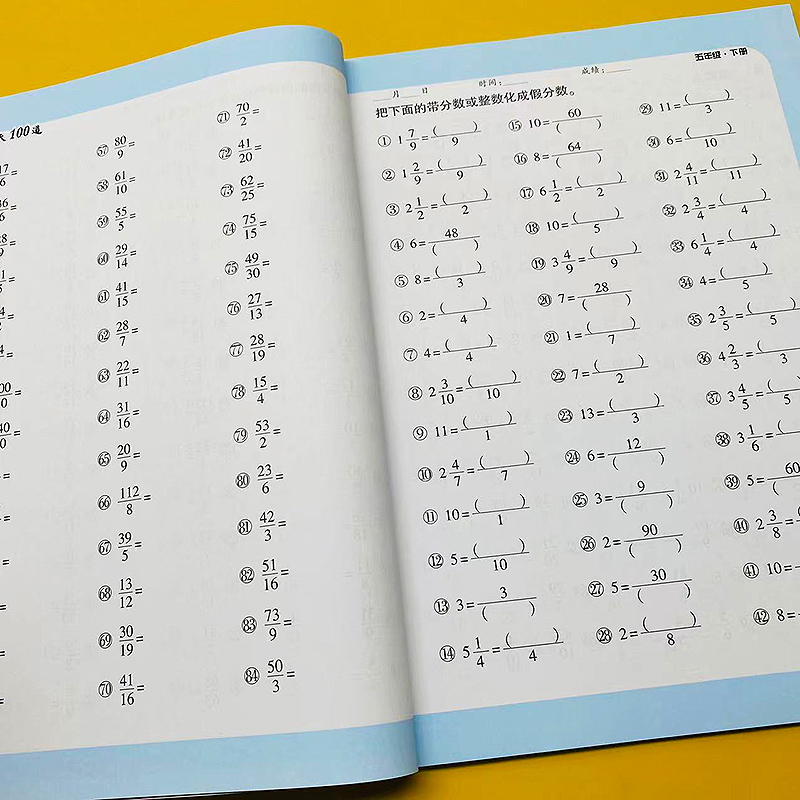 100道
57 80/9=
58 61/10=
59 55/5=
60 29/14=
61 41/15=
62 28/7=
63 22/11=
64 31/16=
65 20/9=
66 112/8=
67 39/5=
68 13/12=
69 30/19=
70 41/16=
71 70/2=
72 41/20=
73 62/25=
74 75/15=
75 49/30=
76 27/13=
77 28/19=
78 15/4=
79 53/2=
80 23/6=
81 42/3=
82 51/16=
83 73/9=
84 50/3=
五年级·下册
月 日 时间: 成绩:
把下面的带分数或整数化成假分数。
① 1 7/9=( )/9
② 1 2/9=( )/9
③ 2 1/2=( )/2
④ 6=48/( )
⑤ 8=( )/3
⑥ 2=( )/4
⑦ 4=( )/4
⑧ 2 3/10=( )/10
⑨ 11=( )/1
⑩ 2 4/7=( )/7
⑪ 10=( )/1
⑫ 5=( )/10
⑬ 3=3/( )
⑭ 5 1/4=( )/4
⑮ 10=60/( )
⑯ 8=64/( )
⑰ 6 1/2=( )/2
⑱ 10=( )/5
⑲ 3 4/9=( )/9
⑳ 7=28/( )
㉑ 1=( )/7
㉒ 7=( )/2
㉓ 13=( )/3
㉔ 6=12/( )
㉕ 3=9/( )
㉖ 2=90/( )
㉗ 5=30/( )
㉘ 2=( )/8
㉙ 11=( )/3
㉚ 6=( )/10
㉛ 2 4/11=( )/11
㉜ 2 3/4=( )/4
㉝ 6 1/4=( )/4
㉞ 4=( )/5
㉟ 2 3/5=( )/5
㊱ 4 2/3=( )/3
㊲ 3 4/5=( )/5
㊳ 3 1/6=(
㊴ 5=60/(
㊵ 2 3/8=(
㊶ 10=
㊷ 8=